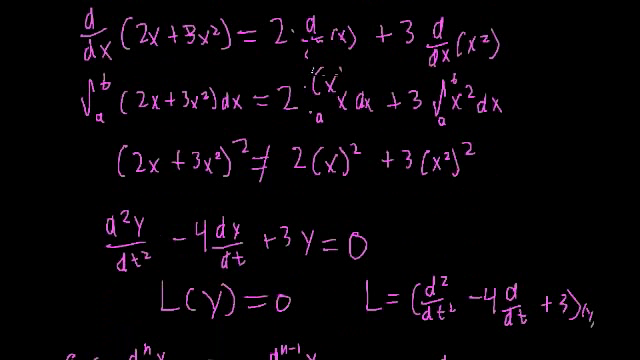 d/dx (2x + 3x²) = 2 · (x) + 3 d/dx (x²)
∫_a^b (2x + 3x²) dx = 2 x dx + 3 ∫_a^b x² dx
(2x + 3x²)² ≠ 2(x)² + 3(x²)²
d²y/dt² - 4 dy/dt + 3y = 0
L(y) = 0 L = (d²/dt² - 4 d/dt + 3)
dⁿy dⁿ⁻¹